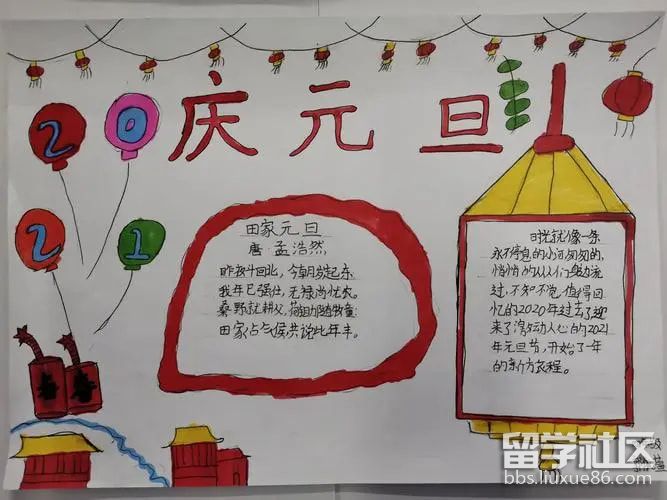 庆元旦
20
21
田家元旦
唐·孟浩然
昨夜斗回北，今朝岁起东
我年已强仕，无禄尚忧农。
桑野就耕父，荷锄随牧童
田家占气候共说此年丰。
时光就像一条
永不停息的小河匆匆的，
悄悄的从人们身边流
过，不知不觉，值得回
忆的2020年过去了迎
来了激动人心的2021
年元旦节，开始了一年
的新方旅程。
春
春
留学社区
bbs.liuxue86.com